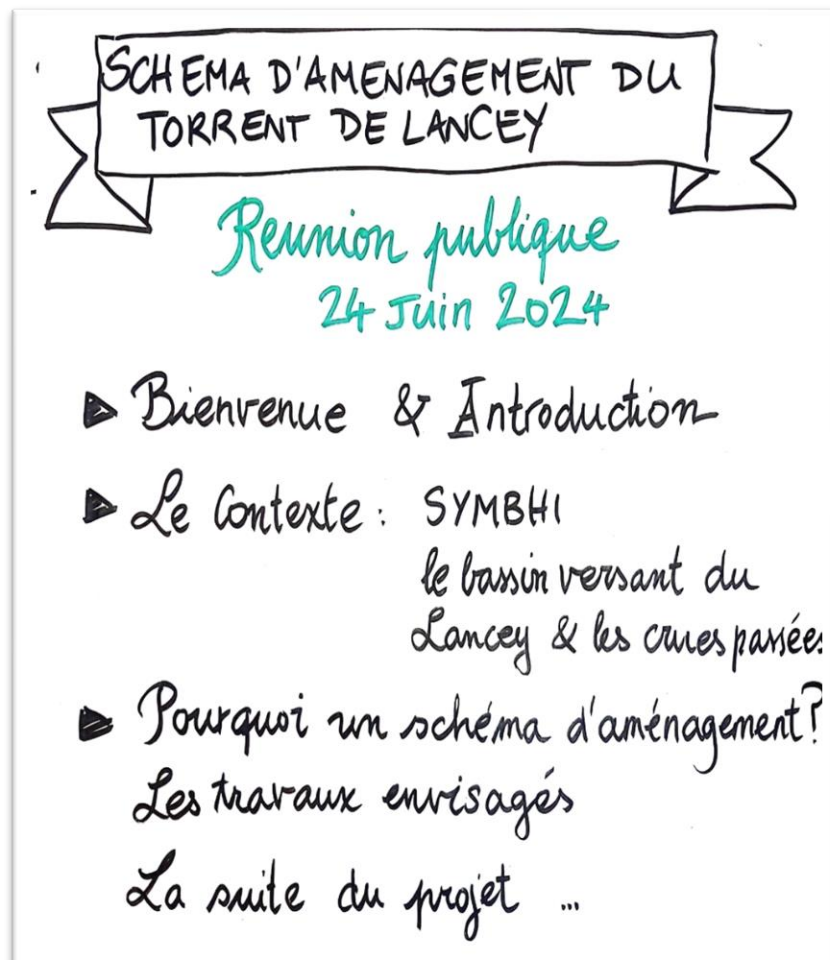 SCHEMA D'AMENAGEMENT DU
TORRENT DE LANCEY
Reunion publique
24 Juin 2024
Bienvenue & Introduction
Le Contexte : SYMBHI
le bassin versant du
Lancey & les crues passées
Pourquoi un schéma d'aménagement?
Les travaux envisagés
La suite du projet ...